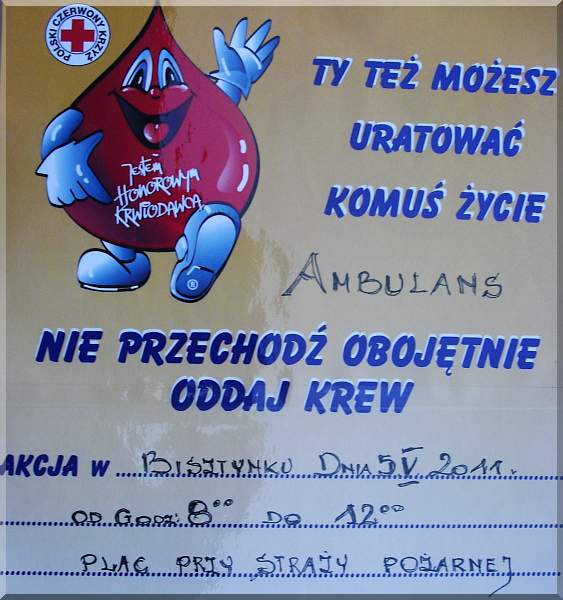 POLSKI CZERWONY KRZYŻ
TY TEŻ MOŻESZ
URATOWAĆ
KOMUŚ ŻYCIE
Jestem
Honorowym
Krwiodawcą
®
AMBULANS
NIE PRZECHODŹ OBOJĘTNIE
ODDAJ KREW
AKCJA w BISZTYNKU DNIA 5 V 2011r.
OD GODZ: 8⁰⁰ DO 12⁰⁰
PLAC PRZY STRAŻY POŻARNEJ